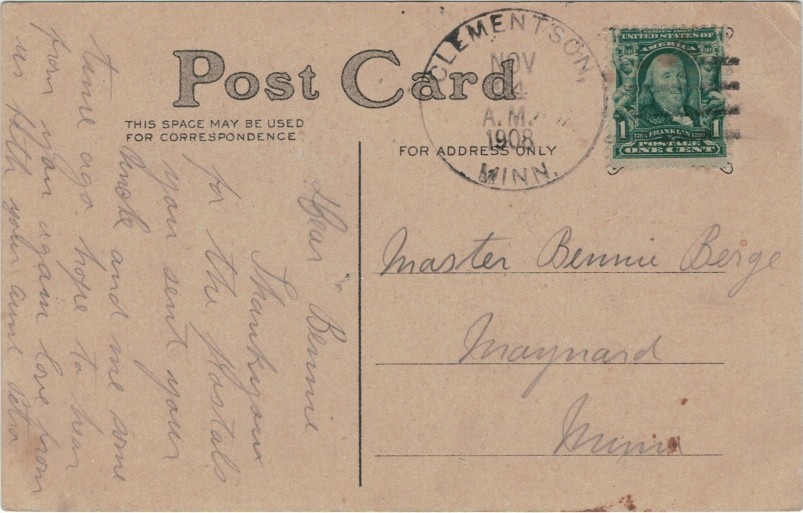 Post Card
THIS SPACE MAY BE USED
FOR CORRESPONDENCE
FOR ADDRESS ONLY
CLEMENTSON,
NOV
4
A.M.
1908
MINN.
SERIES 1902
UNITED STATES OF
AMERICA
1 FRANKLIN 1
POSTAGE
ONE CENT
Master Bennie Berge
Maynard
Minn
Dear Bennie
Thankyou
for the Postals
you sent your
Uncle and me some
time ago. hope to hear
from you again love from
us both your aunt